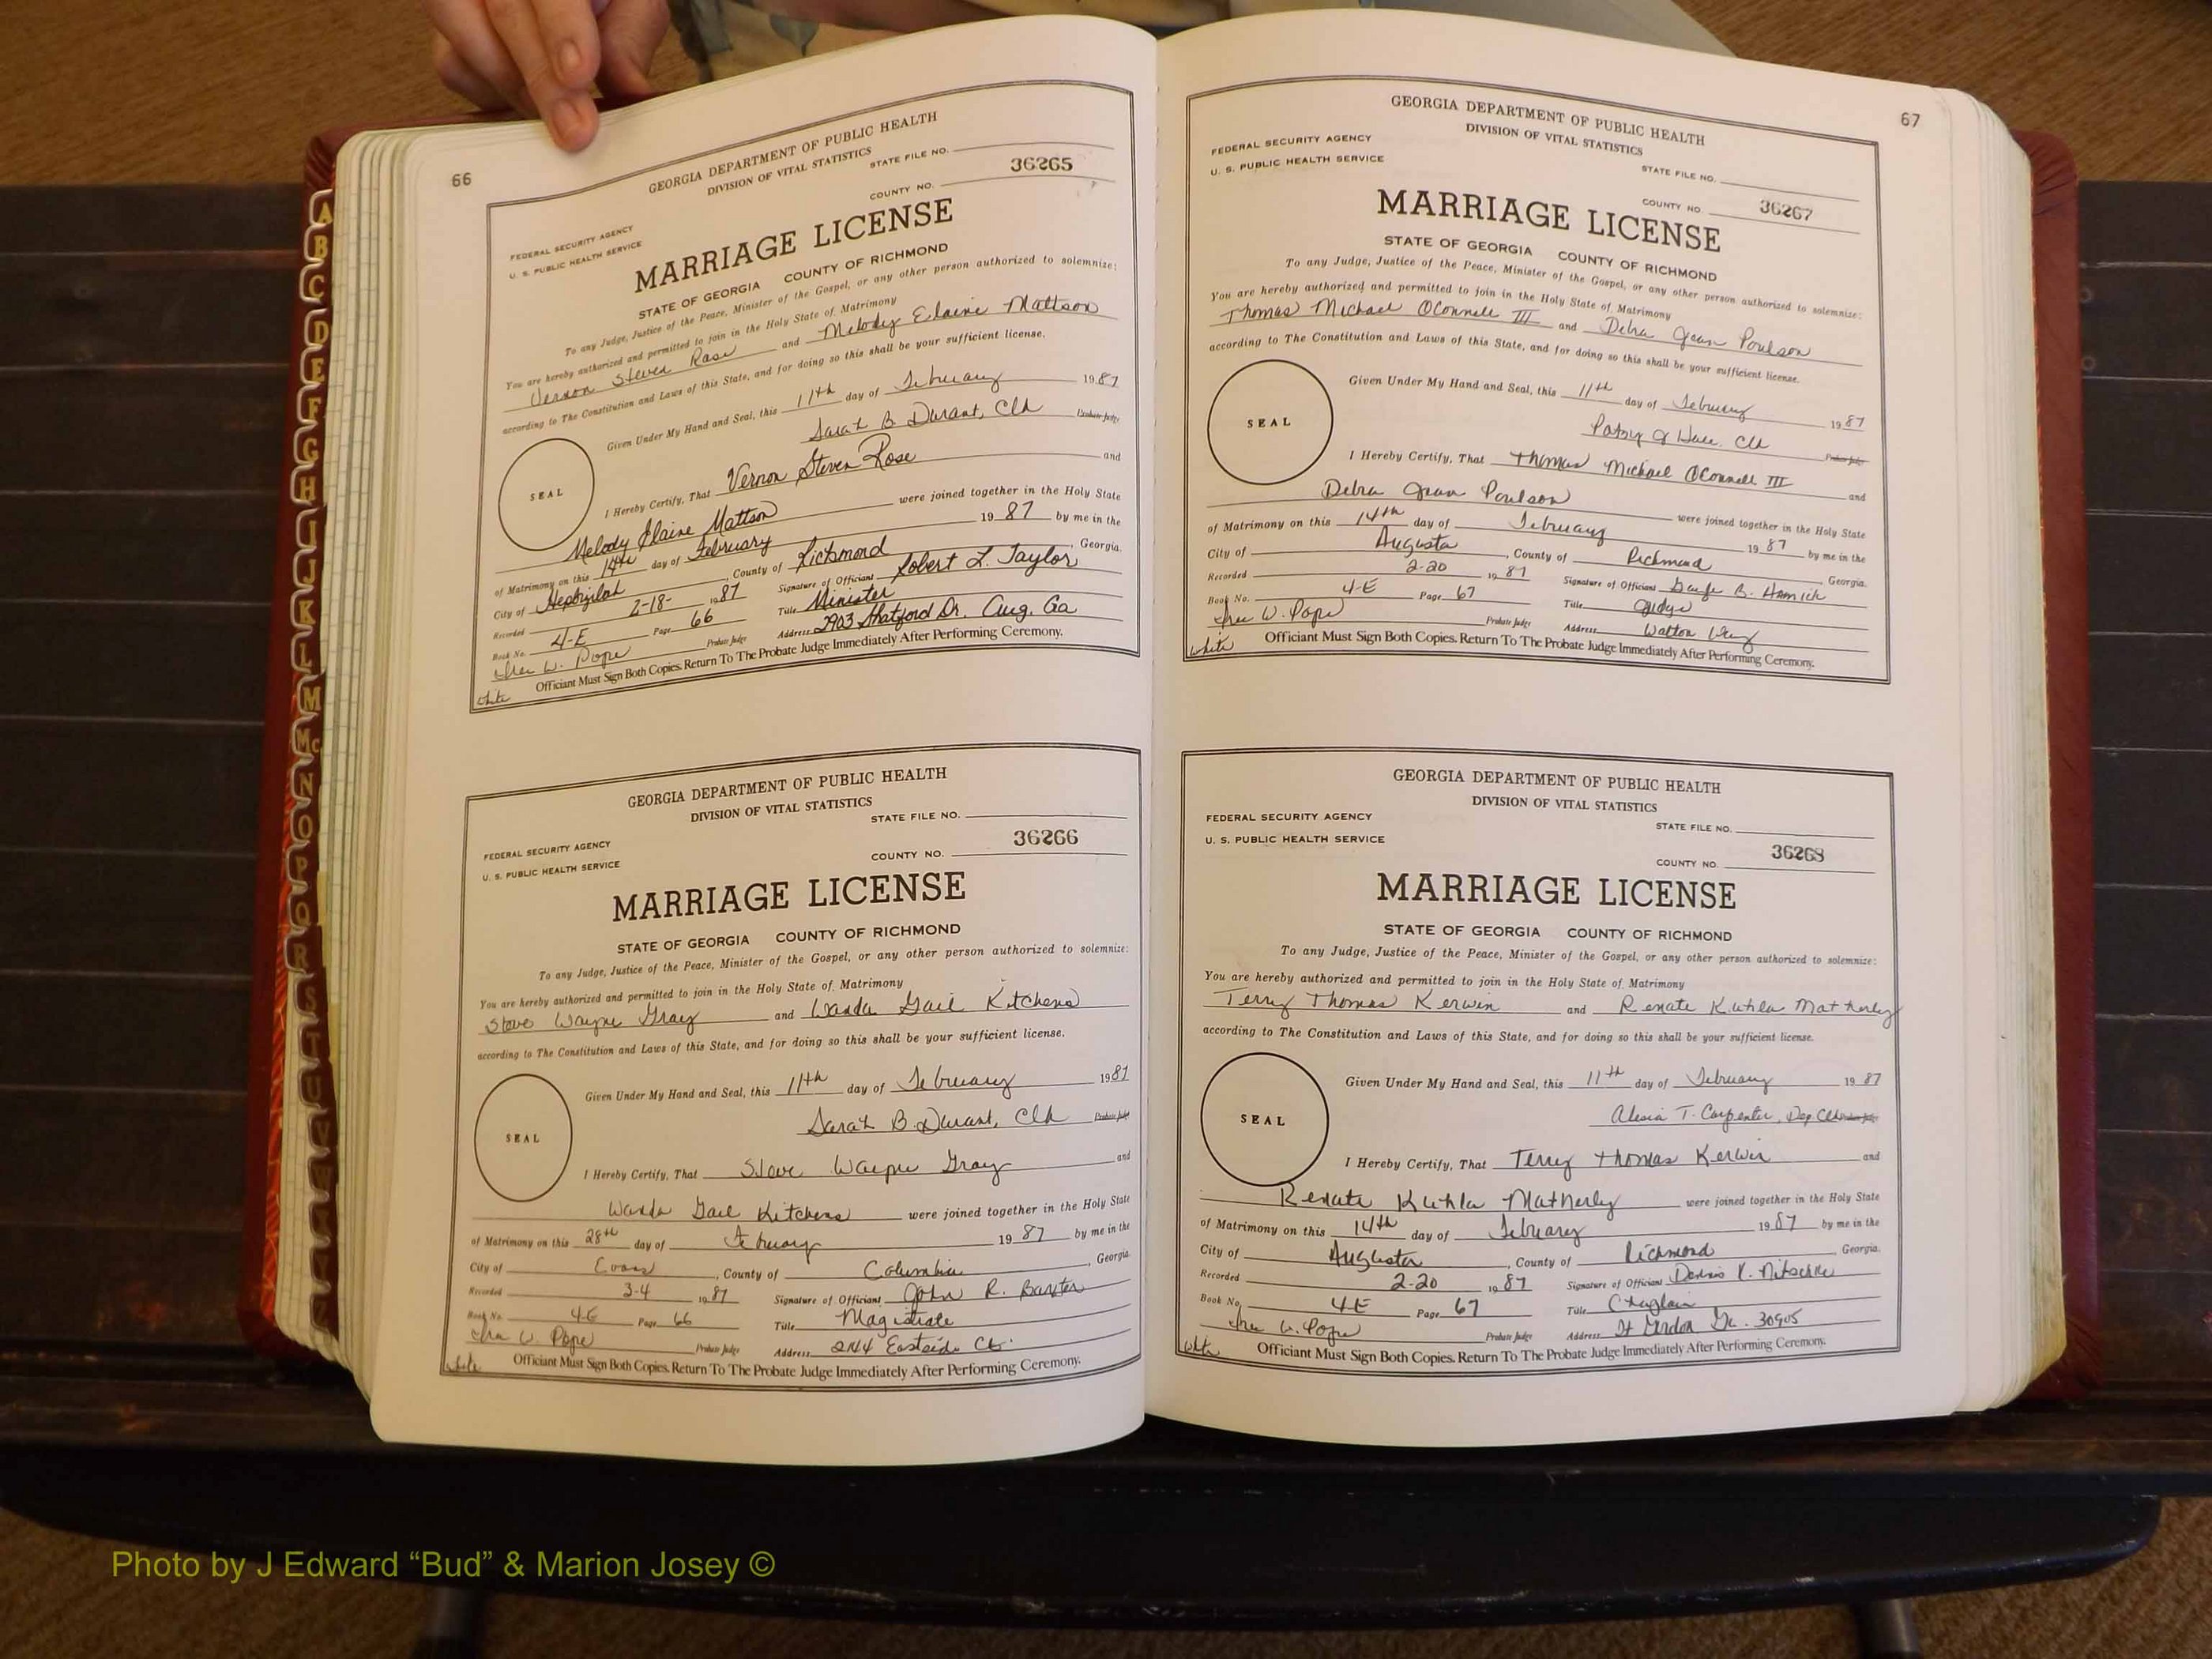 66
GEORGIA DEPARTMENT OF PUBLIC HEALTH
DIVISION OF VITAL STATISTICS
STATE FILE NO.
36265
COUNTY NO.
FEDERAL SECURITY AGENCY
U. S. PUBLIC HEALTH SERVICE
MARRIAGE LICENSE
STATE OF GEORGIA COUNTY OF RICHMOND
To any Judge, Justice of the Peace, Minister of the Gospel, or any other person authorized to solemnize:
You are hereby authorized and permitted to join in the Holy State of Matrimony
Vernon Steven Rose and Melody Elaine Mattson
according to The Constitution and Laws of this State, and for doing so this shall be your sufficient license.
Given Under My Hand and Seal, this 11th day of February 1987
Sarah B. Durant, Clk Probate Judge
SEAL
I Hereby Certify, That Vernon Steven Rose and
Melody Elaine Mattson were joined together in the Holy State
of Matrimony on this 14th day of February 1987 by me in the
City of Hephzibah, County of Richmond, Georgia.
Recorded 2-18- 1987 Signature of Officiant Robert L. Taylor
Book No. 4-E Page 66 Title Minister
W. Pope Probate Judge Address 2903 Shatford Dr. Aug. Ga
Officiant Must Sign Both Copies. Return To The Probate Judge Immediately After Performing Ceremony.
white
GEORGIA DEPARTMENT OF PUBLIC HEALTH
DIVISION OF VITAL STATISTICS
STATE FILE NO.
36266
COUNTY NO.
FEDERAL SECURITY AGENCY
U. S. PUBLIC HEALTH SERVICE
MARRIAGE LICENSE
STATE OF GEORGIA COUNTY OF RICHMOND
To any Judge, Justice of the Peace, Minister of the Gospel, or any other person authorized to solemnize:
You are hereby authorized and permitted to join in the Holy State of Matrimony
Steve Wayne Gray and Wanda Gail Kitchens
according to The Constitution and Laws of this State, and for doing so this shall be your sufficient license.
Given Under My Hand and Seal, this 11th day of February 1987
Sarah B. Durant, Clk Probate Judge
SEAL
I Hereby Certify, That Steve Wayne Gray and
Wanda Gail Kitchens were joined together in the Holy State
of Matrimony on this 28th day of February 1987 by me in the
City of Evans, County of Columbia, Georgia.
Recorded 3-4 1987 Signature of Officiant John R. Baxter
Book No. 4-E Page 66 Title Magistrate
W. Pope Probate Judge Address Eastside Ct.
white Officiant Must Sign Both Copies. Return To The Probate Judge Immediately After Performing Ceremony.
67
GEORGIA DEPARTMENT OF PUBLIC HEALTH
DIVISION OF VITAL STATISTICS
FEDERAL SECURITY AGENCY
U. S. PUBLIC HEALTH SERVICE
STATE FILE NO.
COUNTY NO. 36267
MARRIAGE LICENSE
STATE OF GEORGIA COUNTY OF RICHMOND
To any Judge, Justice of the Peace, Minister of the Gospel, or any other person authorized to solemnize:
You are hereby authorized and permitted to join in the Holy State of Matrimony
Thomas Michael OConnell III and Debra Jean Poulson
according to The Constitution and Laws of this State, and for doing so this shall be your sufficient license.
Given Under My Hand and Seal, this 11th day of February 1987
Patsy Clk Probate Judge
SEAL
I Hereby Certify, That Thomas Michael OConnell III and
Debra Jean Poulson were joined together in the Holy State
of Matrimony on this 14th day of February 1987 by me in the
City of Augusta, County of Richmond, Georgia.
Recorded 2-20 1987 Signature of Officiant B. Hamrick
Book No. 4-E Page 67 Title Judge
W. Pope Probate Judge Address Walton Way
white Officiant Must Sign Both Copies. Return To The Probate Judge Immediately After Performing Ceremony.
GEORGIA DEPARTMENT OF PUBLIC HEALTH
DIVISION OF VITAL STATISTICS
FEDERAL SECURITY AGENCY
U. S. PUBLIC HEALTH SERVICE
STATE FILE NO.
COUNTY NO. 36268
MARRIAGE LICENSE
STATE OF GEORGIA COUNTY OF RICHMOND
To any Judge, Justice of the Peace, Minister of the Gospel, or any other person authorized to solemnize:
You are hereby authorized and permitted to join in the Holy State of Matrimony
Terry Thomas Kerwin and Renate Kuhla Matherly
according to The Constitution and Laws of this State, and for doing so this shall be your sufficient license.
Given Under My Hand and Seal, this 11th day of February 1987
Alesia T. Carpenter, Dep Clk Probate Judge
SEAL
I Hereby Certify, That Terry Thomas Kerwin and
Renate Kuhla Matherly were joined together in the Holy State
of Matrimony on this 14th day of February 1987 by me in the
City of Augusta, County of Richmond, Georgia.
Recorded 2-20 1987 Signature of Officiant Dennis K. Nitschke
Book No. 4-E Page 67 Title Chaplain
W. Pope Probate Judge Address Ft Gordon Ga. 30905
white Officiant Must Sign Both Copies. Return To The Probate Judge Immediately After Performing Ceremony.
A
B
C
D
E
F
G
H
I
J
K
L
M
Mc
N
O
P
Q
R
S
T
U
V
W
Photo by J Edward “Bud” & Marion Josey ©